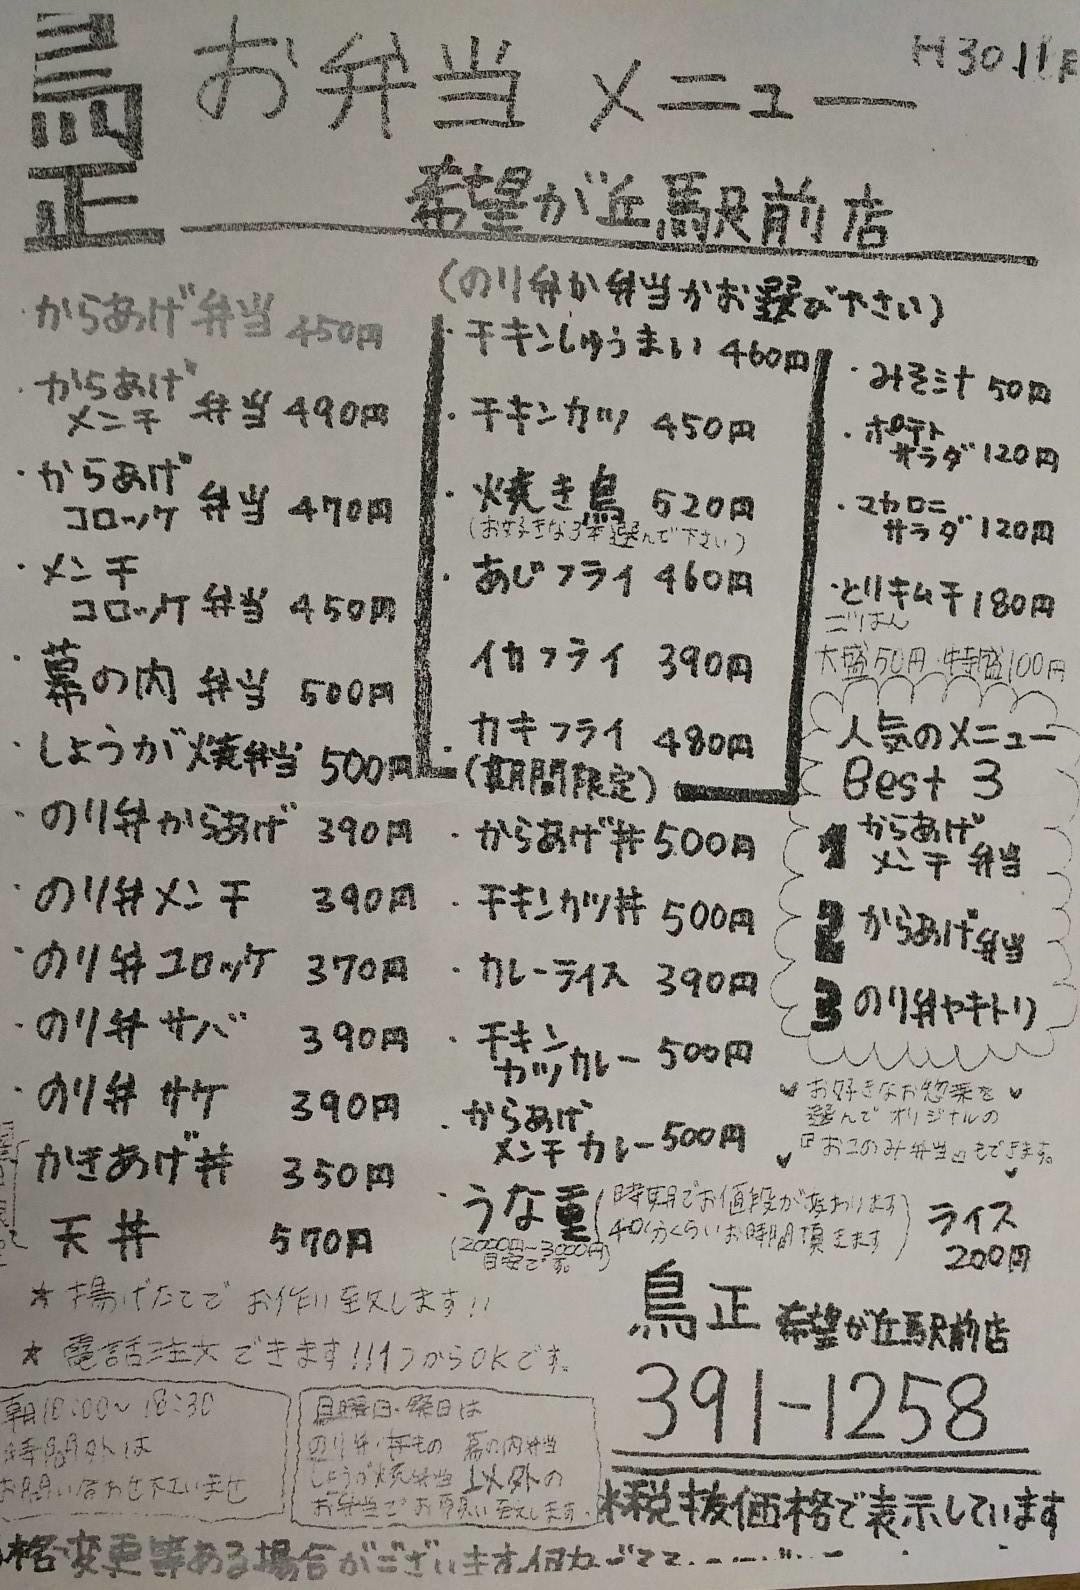 鳥正
お弁当 メニュー
H30.11月
希望が丘駅前店
・からあげ弁当 450円
・からあげメンチ弁当 490円
・からあげコロッケ弁当 470円
・メンチコロッケ弁当 450円
・幕の内弁当 500円
・しょうが焼弁当 500円
・のり弁からあげ 390円
・のり弁メンチ 390円
・のり弁コロッケ 370円
・のり弁サバ 390円
・のり弁サケ 390円
かきあげ丼 350円
天丼 570円
(のり弁か弁当かお選び下さい)
・チキンしゅうまい 460円
・チキンカツ 450円
・焼き鳥 520円
(お好きな3本選んで下さい)
・あじフライ 460円
イカフライ 390円
・カキフライ 480円
(期間限定)
・からあげ丼 500円
・チキンカツ丼 500円
・カレーライス 390円
・チキンカツカレー 500円
・からあげメンチカレー 500円
・うな重(時期でお値段が変わります
40分くらいお時間頂きます)
(2000円〜3000円)
目安です。
ライス
200円
・みそ汁 50円
・ポテトサラダ 120円
・マカロニサラダ 120円
・とりキムチ 180円
ごはん
大盛50円・特盛100円
人気のメニュー
Best 3
1 からあげメンチ弁当
2 からあげ弁当
3 のり弁ヤキトリ
お好きなお惣菜を
選んでオリジナルの
『おこのみ弁当』もできます。
★揚げたてでお作り致します!!
★電話注文できます!!1つからOKです。
朝10:00〜18:30
時間外は
お問い合わせ下さいませ
日曜日・祭日は
のり弁・丼もの 幕の内弁当
しょうが焼弁当 以外の
お弁当でお願い致します。
鳥正 希望が丘駅前店
391-1258
※税抜価格で表示しています
価格変更等ある場合がございます